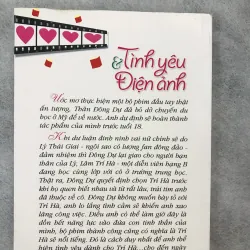 Tình yêu
& Điện ảnh
Ước mơ thực hiện một bộ phim đầu tay thật
ấn tượng, Thân Đông Dự đã bỏ dở chuyến du
học ở Mỹ để về nước. Anh dự định sẽ hoàn thành
tác phẩm của mình trước tuổi 18.
Khi dự luận định ninh vai nữ chính sẽ do
Lý Thái Giai - ngôi sao có lượng fan đông đảo -
đảm nhiệm thì Đông Dự lại giao cho người bạn
thân của Lý, Lâm Trì Hà - một diễn viên hạng B
đang học cùng lớp với cô ở trường trung học.
Thật ra, Đông Dự quyết định chọn Trì Hà trước
khi họ quen biết nhau vì từ rất lâu, trái tim anh
đã thuộc về cô. Đông Dự không muốn bày tỏ với
Trì Hà, anh lo lắng tình cảm sẽ khiến anh xao
lãng công việc. Điều anh có thể làm giờ đây là
dồn hết năng lực vào đứa con tinh thần của
mình, bộ phim thành công cũng có nghĩa là Trì
Hà sẽ nổi tiếng. Đó là cách duy nhất để anh thể
hiện tình yêu dành cho Trì Hà